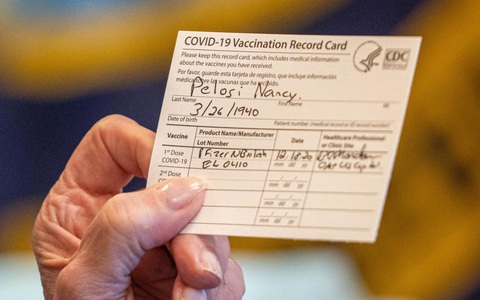 COVID-19 Vaccination Record Card
CDC
Please keep this record card, which includes medical information
about the vaccines you have received.
Por favor, guarde esta tarjeta de registro, que incluye información
médica sobre las vacunas que ha recibido.
Pelosi Nancy
Last Name First Name MI
3/26/1940
Date of birth Patient number (medical record or IIS record number)
Vaccine Product Name/Manufacturer Date Healthcare Professional
Lot Number or Clinic Site
1st Dose Pfizer
COVID-19 EL0140 mm dd yy
2nd Dose
COVID-19 mm dd yy
mm dd yy
mm dd yy